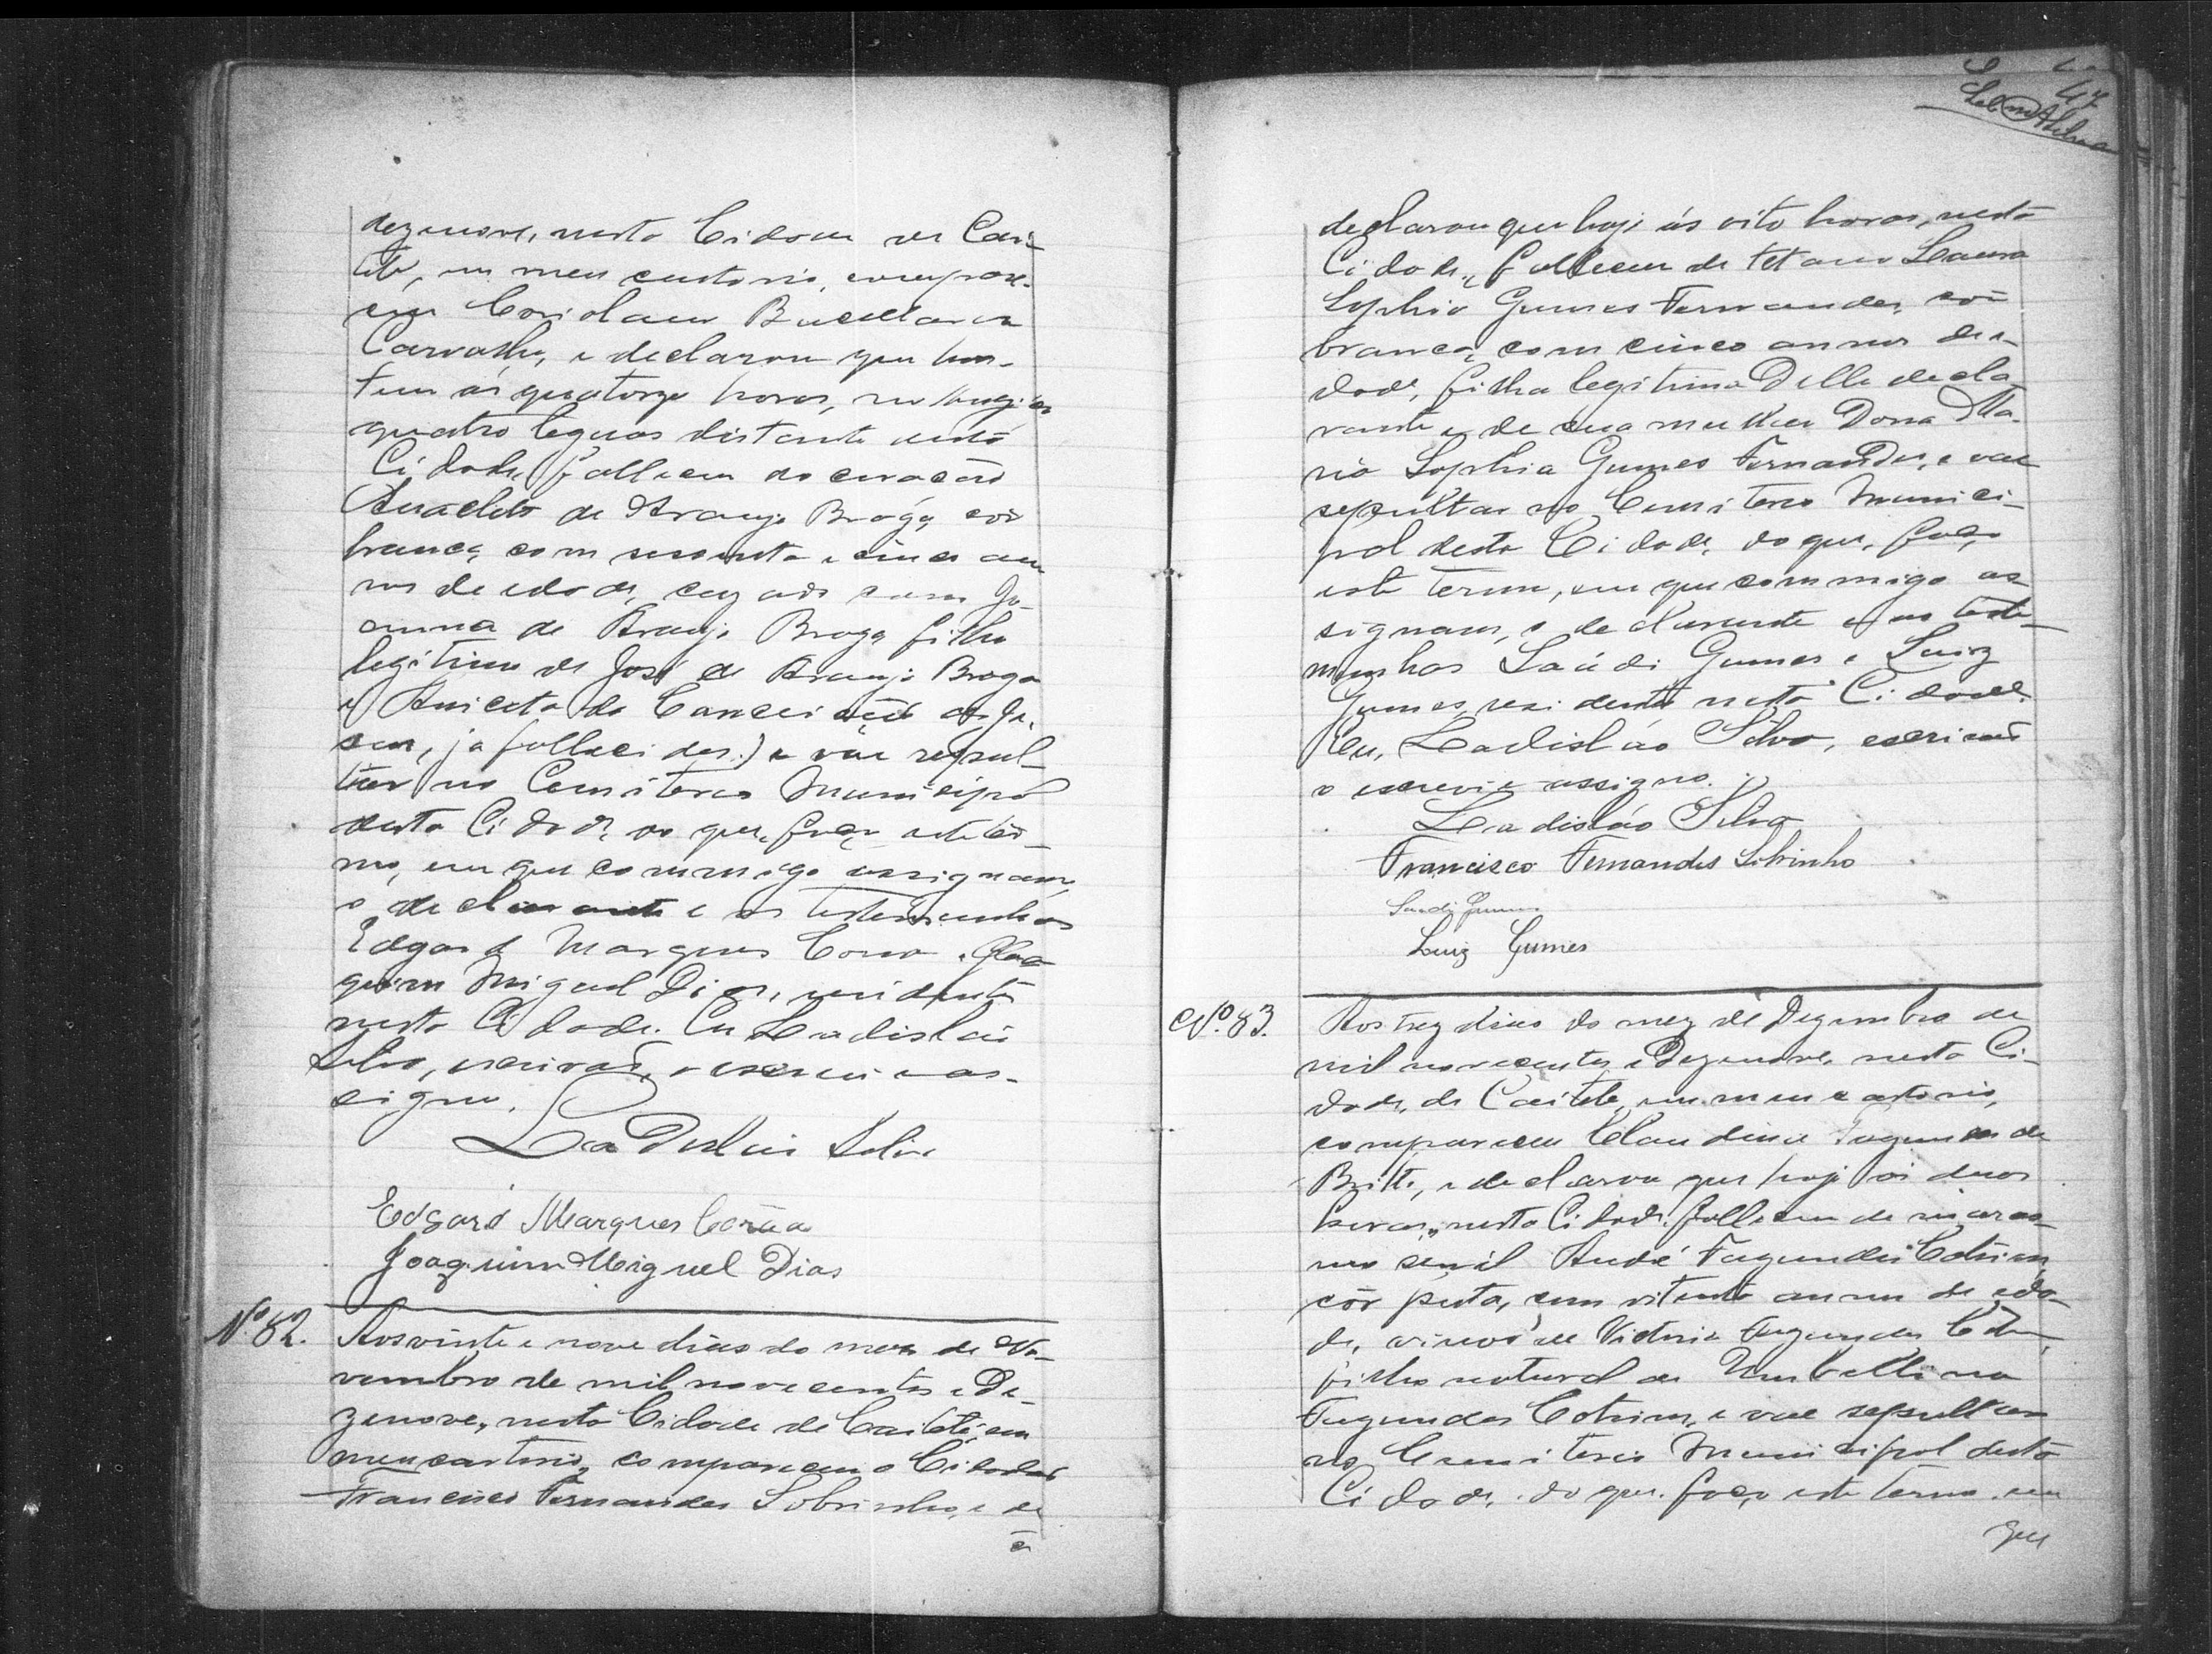 dezenove, nesta Cidade de Cai-
teté, em meu cartorio, compare-
ceu Coriolano
Carvalho, e declarou que hon-
tem ás quatorze horas, no lugar
quatro leguas distante desta
Cidade, falleceu do coração
Anacleto de Araujo Braga, côr
branca, com sessenta e cinco an
nos de edade, cazado com Jo-
anna de Araujo Braga filho
legitimo de José de Araujo Braga
e Aniceta da Conceição de Je-
sus, ja fallecidos.) e vae sepul-
tar no Cemiterio Municipal
desta Cidade, do que, faço este ter-
mo, em que commigo assignam,
o declarante e as testemunhas
Edgard Marques Correa e Joa
quim Miguel Dias, residentes
nesta Cidade. Eu Ladisláo
Silva, escrivão, o escrevi e as-
signo.
Ladisláo Silva
Edgard Marques Corrêa
Joaquim Miguel Dias
Nº 82. Aos vinte e nove dias do mez de No-
vembro de mil novecentos e De-
zenove, nesta Cidade de Caiteté, em
meu cartorio, compareceu o Cidadão
Francisco Fernandes Sobrinho, e de
47
declarou que hoje ás oito horas, nesta
Cidade, falleceu de tetano Laura
Sophia Gumes Fernandes, côr
branca, com cinco annos de e-
dade, filha legitima Delle decla
rante e de sua mulher Dona Ma-
ria Sophia Gumes Fernandes, e vae
sepultar no Cemiterio Munici-
pal desta Cidade, do que, faço
este termo, em que commigo as
signam, o declarante e as teste-
munhas Saúdi Gumes e Luiz
Gumes, residentes nesta Cidade.
Eu, Ladisláo Silva, escrivão
o escrevi e assigno.
Ladisláo Silva
Francisco Fernandes Sobrinho
Saudi Gumes
Luiz Gumes
Nº 83. Aos trez dias do mez de Dezembro de
mil novecentos e Dezenove, nesta Ci-
dade, de Caiteté, em meu cartorio,
compareceu Claudina Fagundes de
Britto, e declarou que hoje ás duas
horas, nesta Cidade, falleceu de maras
mo senil André Fagundes Cotrim,
côr preta, com oitenta annos de eda-
de, viuvo de Victoria Fagundes Cotrim,
filho natural de Umbellina
Fagundes Cotrim, e vae sepultar
no Cemiterio Municipal desta
Cidade, do que, faço este termo, em
que